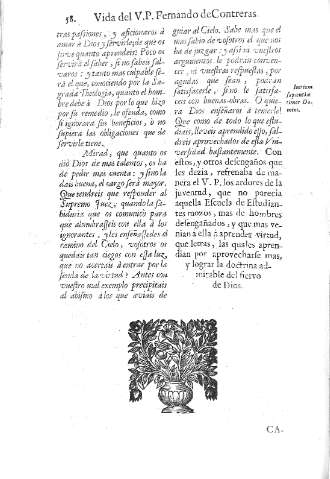 58. Vida del V. P. Fernando de Contreras.
tras passiones, y aficionaros à
amar à Dios y servirle, que os
sirve quanto aprendeis? Poco os
servirà el saber, si no sabeis sal-
varos: y tanto mas culpable se-
rà el que, conociendo por la Sa-
grada Theologia, quanto el hom-
bre debe à Dios por lo que hizo
por su remedio, le ofenda, como
si ignorara sus beneficios, o no
supiera las obligaciones que de
servirle tiene.
Mirad, que quanto os
diò Dios de mas talentos, os ha
de pedir mas cuenta: y sino la
dais buena, el cargo serà mayor.
Que tendreis que responder al
Supremo Juez, quando la sa-
biduria que os comunicò para
que alumbrasseis con ella à los
ignorantes, y les enseñasseis el
camino del Cielo, vosotros os
quedais tan ciegos con esta luz,
que no acertais à entrar por la
senda de la virtud? Antes con
vuestro mal exemplo precipitais
al abismo à los que aviais de
guiar al Cielo. Sabe mas que el
mas sabio de vosotros el que nos
ha de juzgar: y assi ni vuestros
argumentos le podràn conven-
cer, ni vuestras respuestas, por
agudas que sean, podràn
satisfacerle, si no le satisfa-
ceis con buenas obras. O quie-
ra Dios enseñaros à temerle!
Que como de todo lo que estu-
diais, lleveis aprendido esso, sal-
dreis aprovechados de esta Vni-
versidad bastantemente. Con
estos, y otros desengaños que
les dezia, refrenaba de ma-
nera el V. P. los ardores de la
juventud, que no parecia
aquella Escuela de Estudian-
tes mozos, mas de hombres
desengañados; y que mas ve-
nian à ella à aprender virtud,
que letras, las quales apren-
dian por aprovecharse mas,
y lograr la doctrina ad-
mirable del siervo
de Dios.
Initium
sapientiæ
timor Do-
mini.
CA-